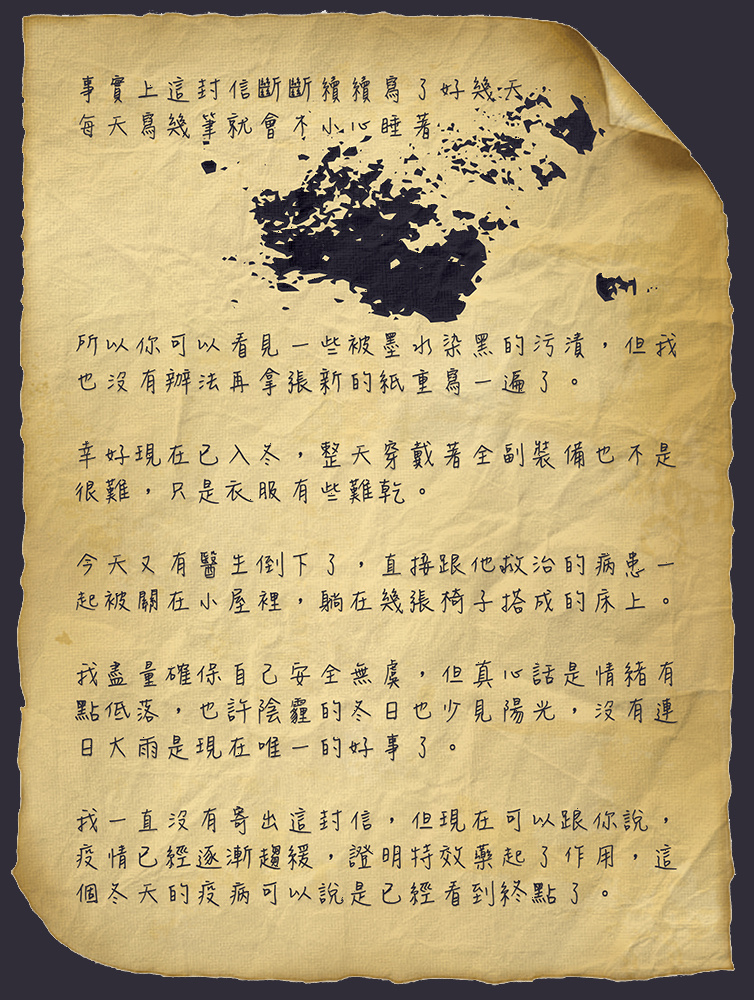 事實上這封信斷斷續續寫了好幾天
每天寫幾筆就會不小心睡著
所以你可以看見一些被墨水染黑的污漬，但我
也沒有辦法再拿張新的紙重寫一遍了。
幸好現在已入冬，整天穿戴著全副裝備也不是
很難，只是衣服有些難乾。
今天又有醫生倒下了，直接跟他救治的病患一
起被關在小屋裡，躺在幾張椅子搭成的床上。
我盡量確保自己安全無虞，但真心話是情緒有
點低落，也許陰霾的冬日也少見陽光，沒有連
日大雨是現在唯一的好事了。
我一直沒有寄出這封信，但現在可以跟你說，
疫情已經逐漸趨緩，證明特效藥起了作用，這
個冬天的疫病可以說是已經看到終點了。